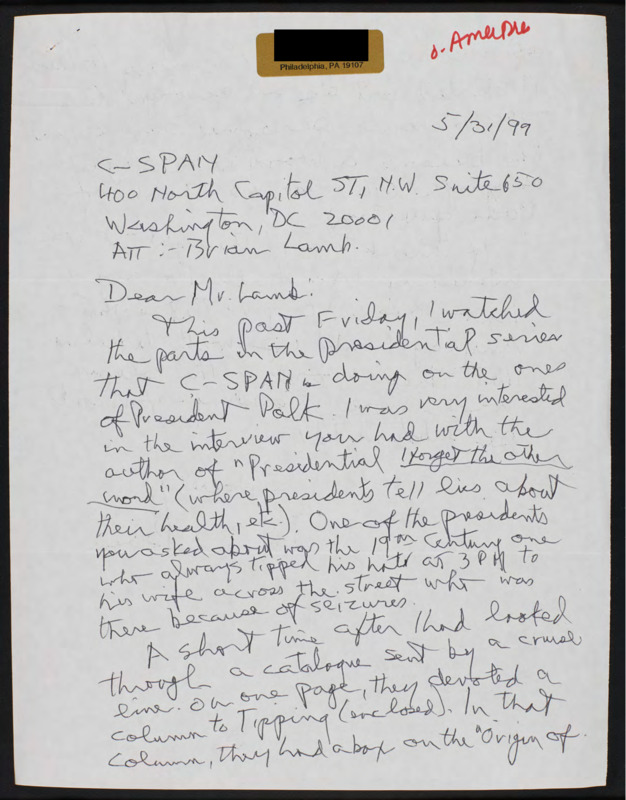 Philadelphia, PA 19107
5/31/99
C-SPAN
400 North Capitol ST, N.W. Suite 650
Washington, DC 20001
ATT :- Brian Lamb.
Dear Mr. Lamb:
This past Friday, I watched
the parts in the presidential series
that C-SPAN is doing on the ones
of President Polk. I was very interested
in the interview you had with the
author of "Presidential I forget the other
word" (where presidents tell lies about
their health, etc). One of the presidents
you asked about was the 19th Century one
who always tipped his hats at 3 PM to
his wife across the street who was
there because of seizures.
A short time after I had looked
through a catalogue sent by a cruise
line. On one page, they devoted a
column to Tipping (enclosed). In that
column, they had a box on the "Origin of